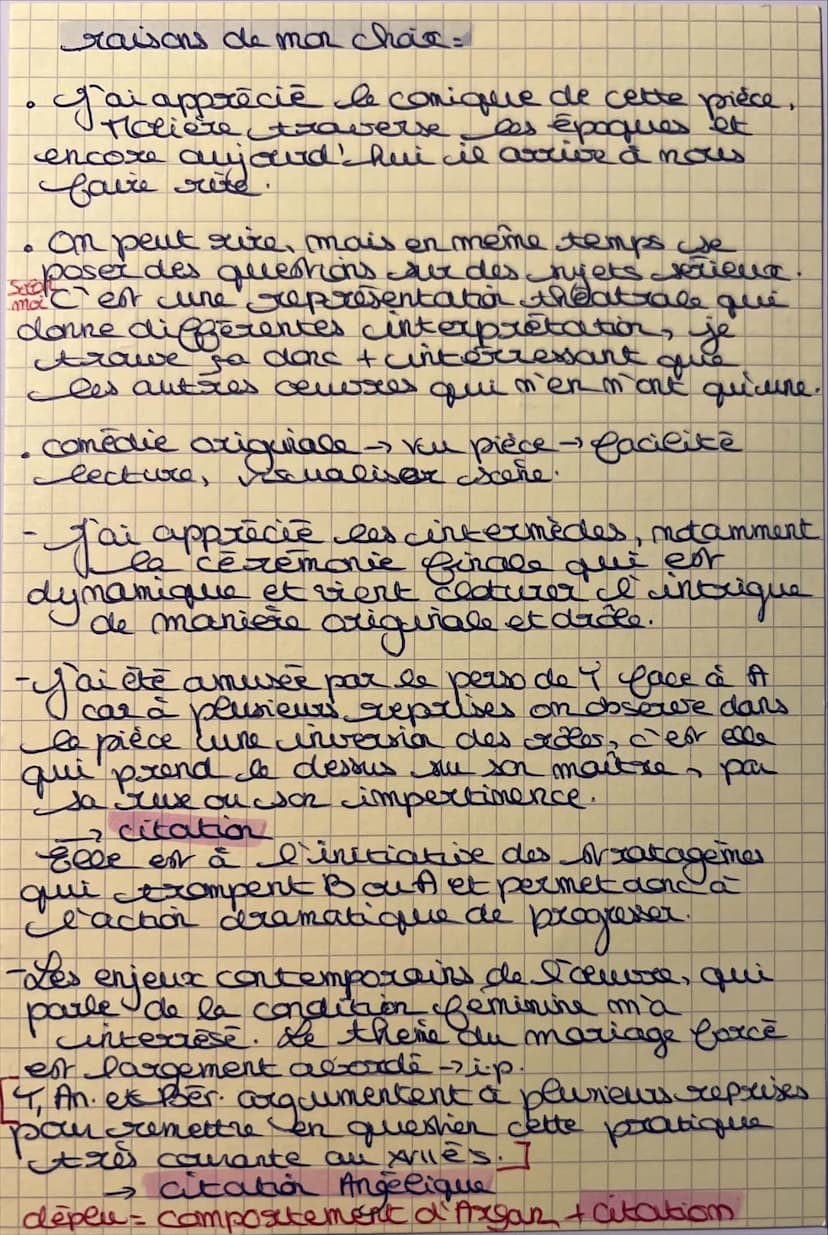 raisons de mon choix =
• J'ai apprécié le comique de cette pièce,
Molière traverse les époques et
encore aujourd'hui il arrive à nous
faire rire.
• On peut rire, mais en même temps se
poser des questions sur des sujets sérieux.
Selon moi c'est une représentation théâtrale qui
donne différentes interprétation, je
trouve ça donc + intérressant que
les autres oeuvres qui n'en n'ont qu'une.
• comédie originale → vu pièce → facilité
lecture, visualiser scène.
- J'ai apprécié les intermèdes, notamment
la cérémonie finale qui est
dynamique et vient cloturer l'intrigue
de manière originale et drôle.
- J'ai été amusée par le perso de T face à A
car à plusieurs reprises on observe dans
la pièce une inversion des rôles, c'est elle
qui prend le dessus su son maître, par
sa ruse ou son impertinence.
→ citation
Elle est à l'initiative des stratagèmes
qui trompent B ou A et permet donc à
l'action dramatique de progresser.
- Les enjeux contemporains de l'oeuvre, qui
parle de la condition féminine m'a
interresé. Le thème du mariage forcé
est largement abordé → i.p.
[T, An. et Bér. argumentent à plusieurs reprises
pour remettre en question cette pratique
très courante au XVIIès.]
→ citation Angélique
dépeu = comportement d'Argan + citation